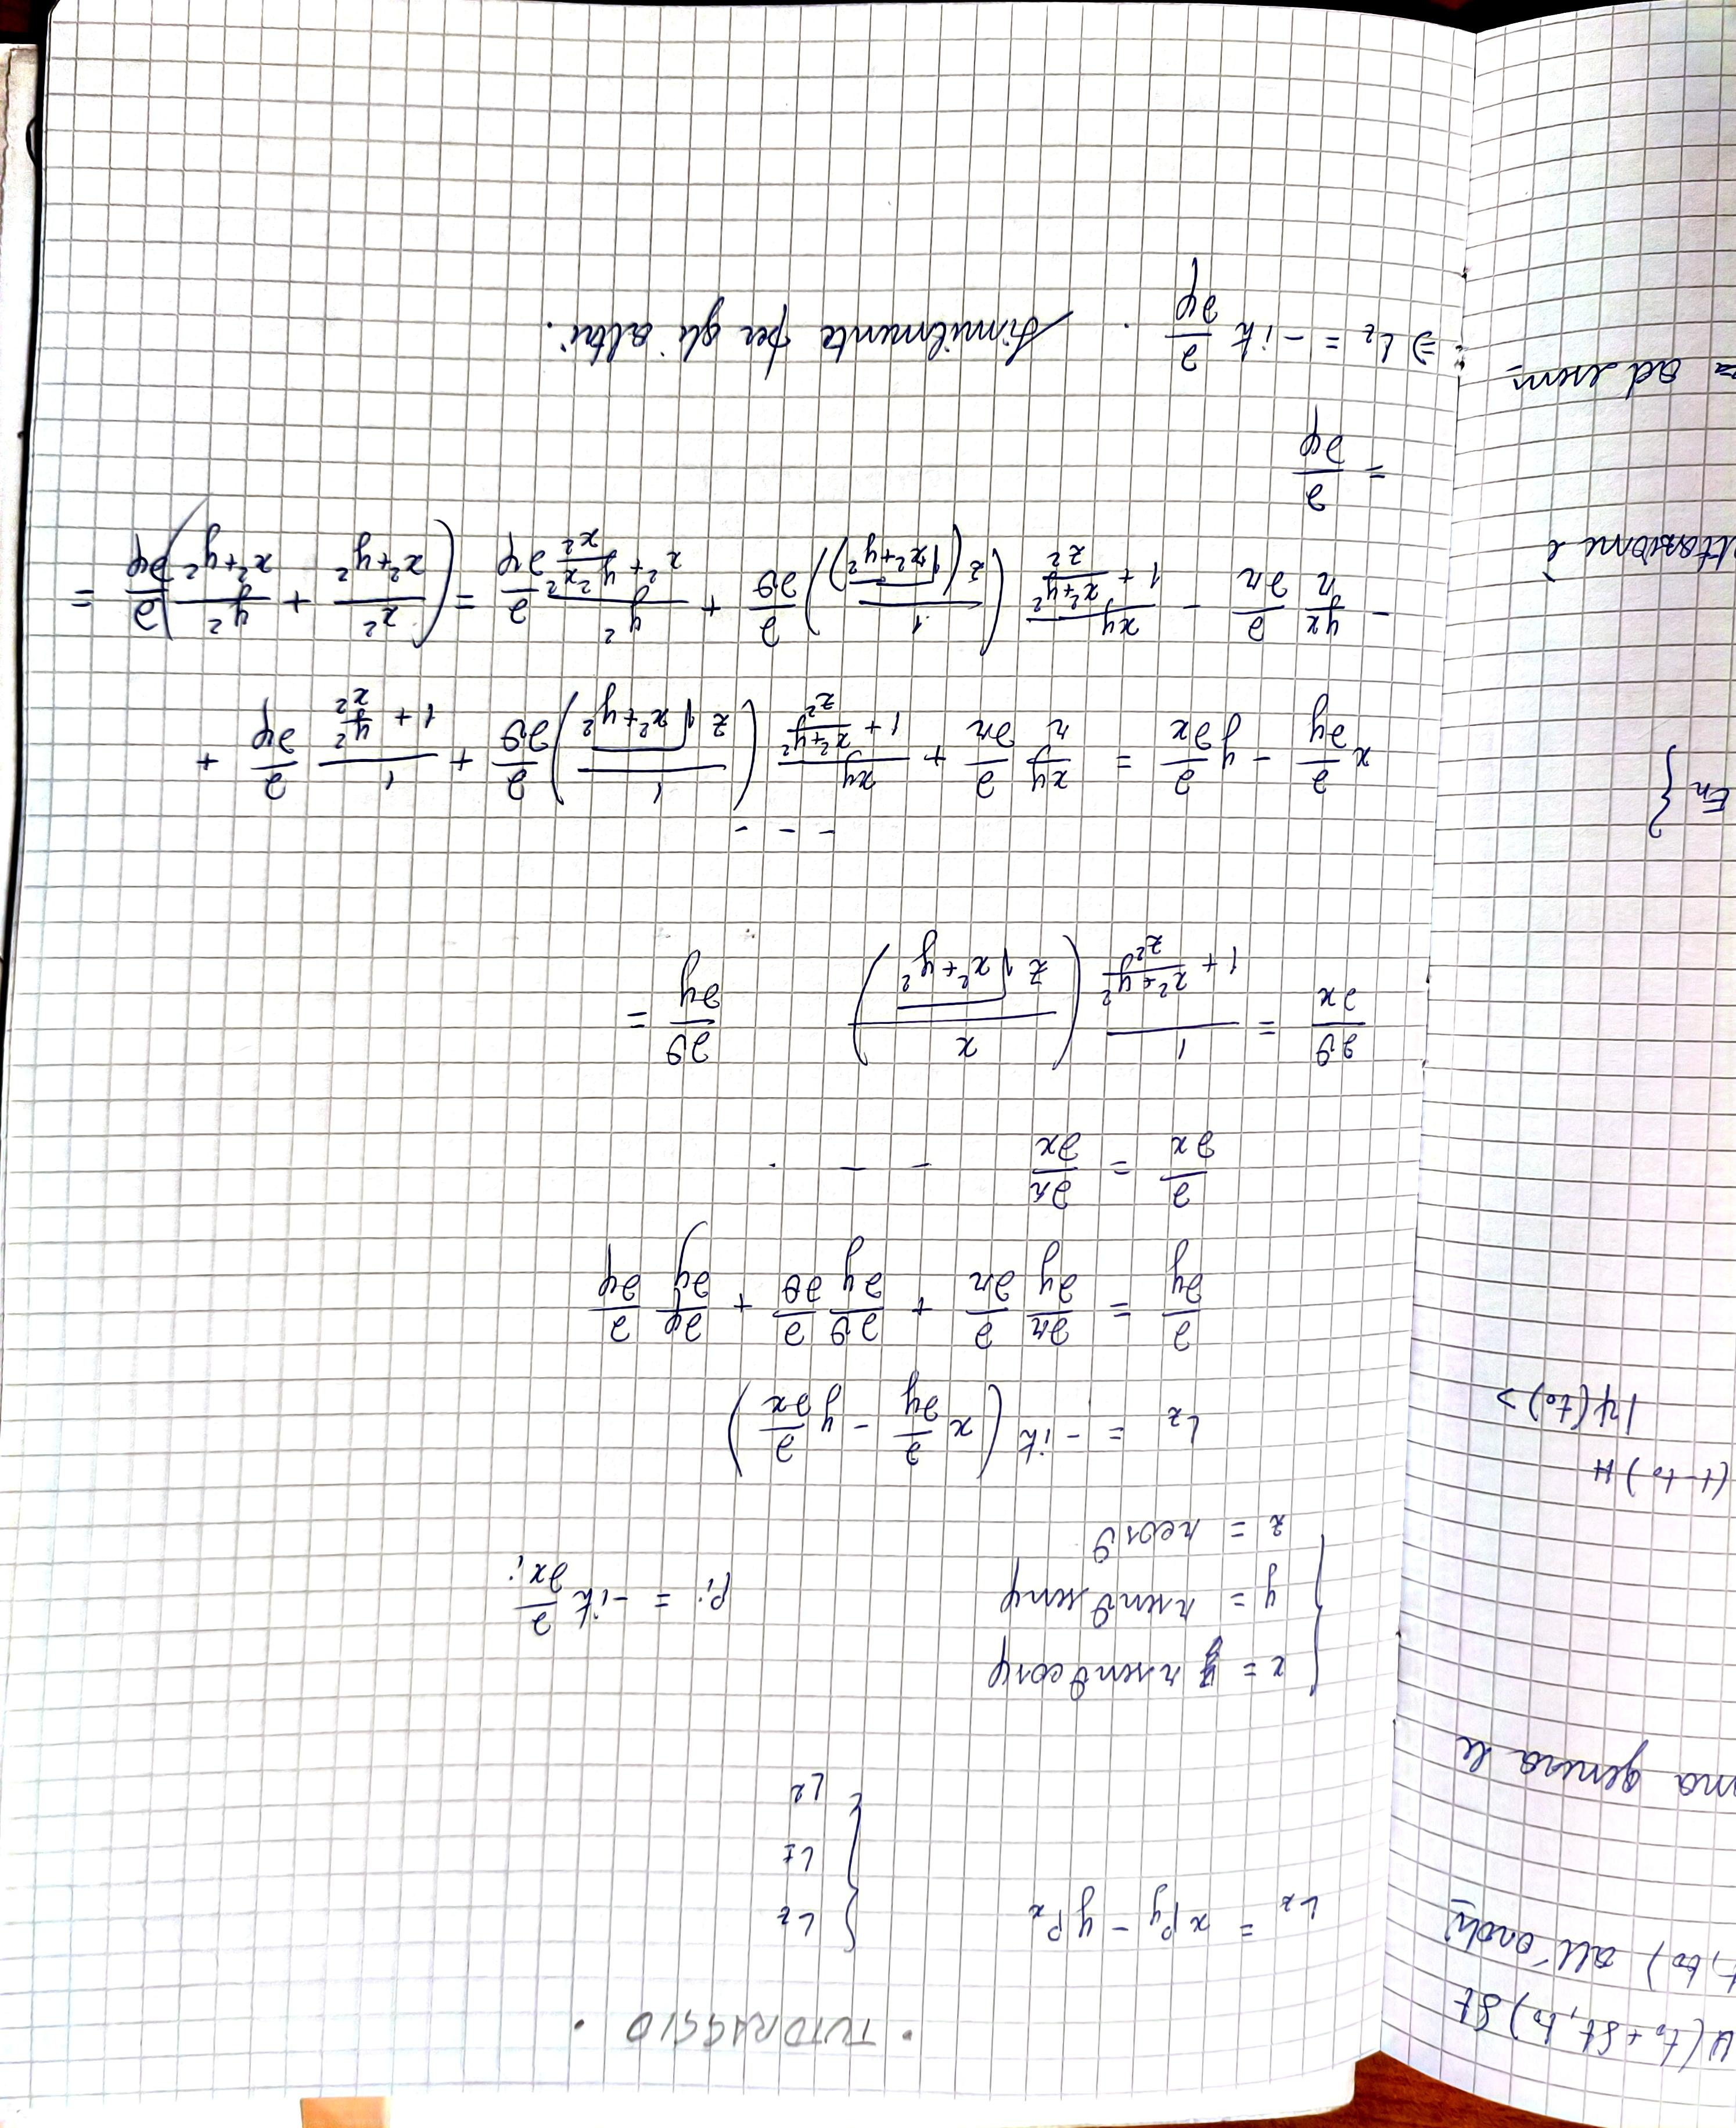 • TUTORAGGIO •
L_z = x p_y − y p_x { L_z
L_I
L_2
{ x = r sen θ cos φ
y = r sen θ sen φ p_i = −iħ ∂/∂x_i
z = r cos θ
L_z = −iħ (x ∂/∂y − y ∂/∂x)
∂/∂y = ∂r/∂y ∂/∂r + ∂θ/∂y ∂/∂θ + ∂φ/∂y ∂/∂φ
∂/∂x = ∂r/∂x - - -
∂θ/∂x = 1/(1 + (x²+y²)/z²) (x/(z√(x²+y²))) ∂θ/∂y =
- - -
x ∂/∂y − y ∂/∂x = xy/r ∂/∂r + xy/(1 + (x²+y²)/z²) (1/(z√(x²+y²))) ∂/∂θ + 1/(1 + y²/x²) ∂/∂φ +
− yx/r ∂/∂r − xy/(1 + (x²+y²)/z²) (1/(z(√(x²+y²)))) ∂/∂θ + y²/(x² + y²/x² x²) ∂/∂φ = (x²/(x²+y²) + y²/(x²+y²)) ∂/∂φ =
= ∂/∂φ
⇒ L_z = −iħ ∂/∂φ . Similmente per gli altri.
U(t₀+δt, t₀) δt
, t₀) all'ordi
genera le
(t−t₀)H
|ψ(t₀)>
E_n }
= ad esem.